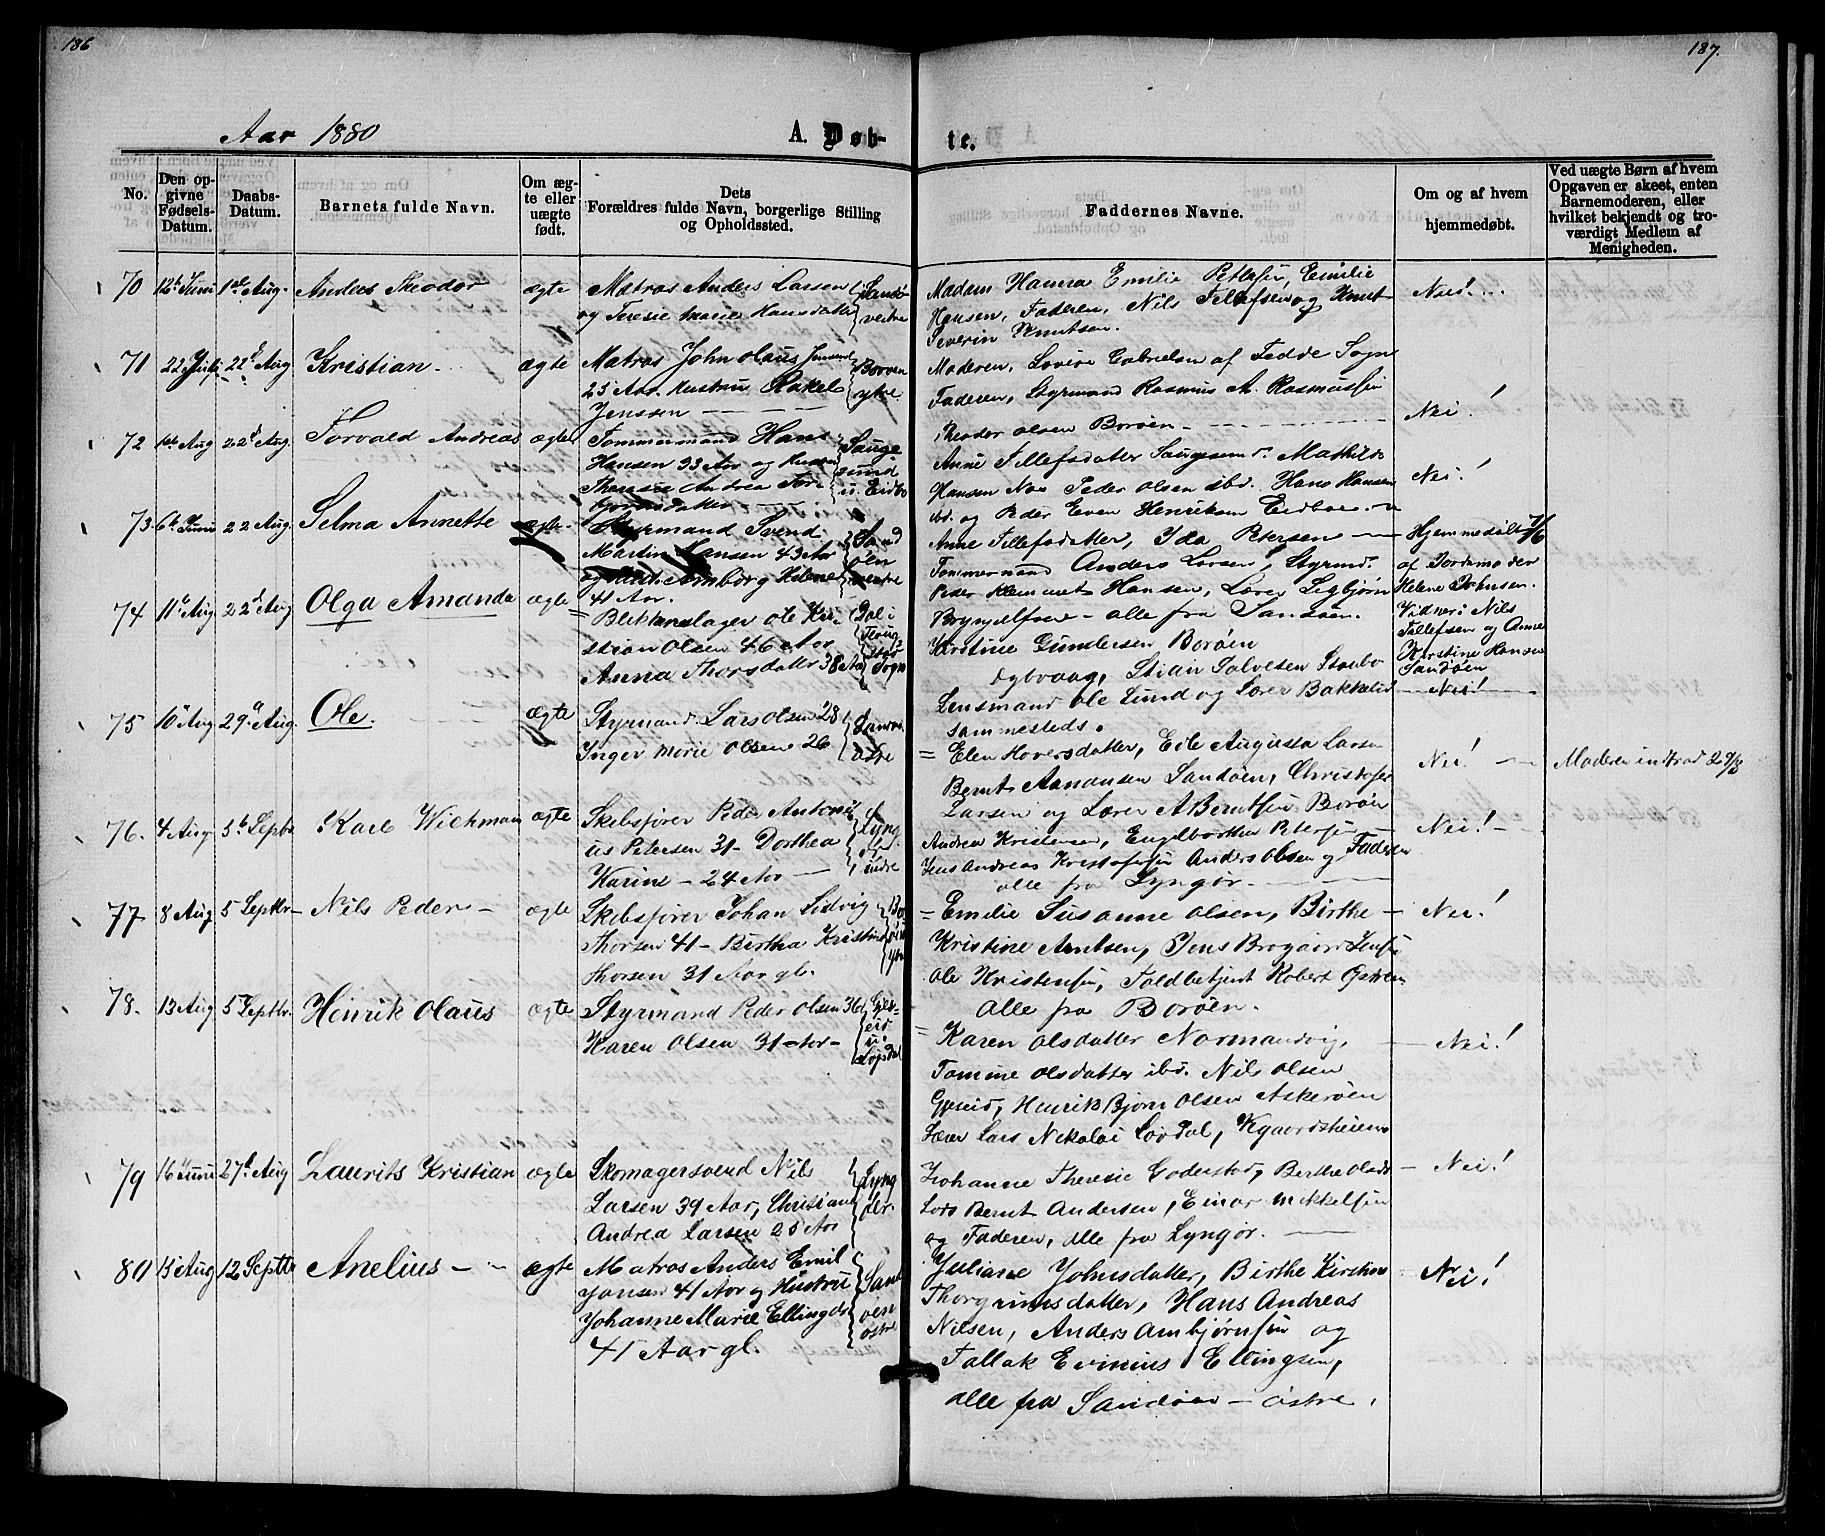 186
187.
Aar 1880
A. Døb-
te.
No.
Den op-
givne
Fødsels-
Datum.
Daabs-
Datum.
Barnets fulde Navn.
Om æg-
te eller
uægte
født.
Dets
Forældres fulde Navn, borgerlige Stilling
og Opholdssted.
Faddernes Navne.
Om og af hvem
hjemmedøbt.
Ved uægte Børn af hvem
Opgaven er skeet, enten
Barnemoderen, eller
hvilket bekjendt og tro-
værdigt Medlem af
Menigheden.
70 12te Juni 1ste Aug. Anders Theodor ægte Matros Anders Larsen
og Teresie Marie Hansdatter
Sandø
vestre
Madam Hanna Emilie Emilie
Hansen, Faderen, Nils Tellefsen og Knut
Severin Knutsen.
Nei!
71 22 Juli 22 Aug Kristian ægte Matros John Olaus
25 Aar Hustru Rakel
Jenssen
Borøen
ytre
Moderen, Lovise Gabrielsen af Fedde Sogn
Faderen, Styrmand Rasmus A. Rasmussen
Theodor Olsen Borøen
Nei!
72 1ste Aug 22 Aug. Torvald Andreas ægte Tømmermand Hans
Hansen 33 Aar og
Andrea Tor-
bjørnsdatter
Sauge
sund
u. Eidbo
Anne Tellefsdatter Saugesund. Mathilde
Hansen Peder Olsen ibd. Hans Hansen
ibd. og Peder Even Henriksen Eidboe
Nei!
73. 6te Juni 22 Aug. Selma Annette ægte Styrmand Svend
Martin Hansen 43 Aar
og Amborg Helene
41 Aar.
Sand
øen
vestre
Anne Tellefsdatter, Ida Petersen
Tømmermand Anders Larsen, Styrmd.
Peder Klemmet Hansen, Lærer Sigbjørn
alle fra Sandøen.
Hjemmedøbt 7/6
af Jordemoder
Helene Johnsen.
Vidner: Nils
Tellefsen og Anne
Kirstine Hansen
Sandøen
74 11te Aug 22 Aug Olga Amanda ægte Blikkenslager Ole Kri-
stian Olsen 46 Aar
Anna Thorsdatter 38 Aar
Sogn
Kirstine Gundersen Borøen
Salvesen Staubø
Lensmand Ole Lund og Lærer Bakkelid
sammesteds.
Nei!
75 10 Aug 29 Aug. Ole. ægte Styrmand Lars Olsen 28
Inger Marie Olsen 26
Sandø
østre
Elen Hoversdatter, Edle Augusta Larsen
Bernt Amandsen Sandøen, Christofer
Larsen og Lærer A Berntsen Borøen
Nei!
Moderen indtrad 29/8
76. 4 Aug 5te Septbr Karl Wichman ægte Skibsfører Peder Antoni
us Petersen 31 - Dorthea
Karine - 24 Aar
Lyng
ør
indre
Andrea Kristensen, Engelbørthea Petersen
Jens Andreas Kristofersen Anders Olsen og Faderen
alle fra Lyngør
Nei!
77 8 Aug 5 Septbr Nils Peder ægte Skibsfører Johan Ludvig
Thorsen 41 - Birtha Kristine
Thorsen 31 Aar gl.
Bor
øen
ytre
Emilie Susanne Olsen, Birthe
Kristine Arntsen, Jens
Ole Kristensen, Toldbetjent Robert
Alle fra Borøen.
Nei!
78. 13 Aug 5 Septbr. Henrik Olaus ægte Styrmand Peder Olsen 36
Karen Olsen 31 Aar
Gjes-
eid
u.
Løvdal
Karen Olsdatter Normandvig,
Tomine Olsdatter ibd. Nils Olsen
Gjeseid, Henrik Bjørn Olsen Askerøen
Lærer Lars Nikolai Løvdal,
Nei!
79 16 Juni 27de Aug Laurits Kristian ægte Skomagersvend Nils
Larsen 39 Aar, Christiane
Andrea Larsen 25 Aar
Lyng
ør.
Johanne Theresie Godersta, Berthe Olsd.
Lars Bernt Andersen, Einar Mikkelsen
og Faderen, alle fra Lyngør.
Nei!
80 15 Aug 12 Septbr Anelius ægte Matros Anders Emil
Jansen 41 Aar og Hustru
Johanne Marie Ellingsdr
41 Aar gl.
Sand
øen
østre
Juliane Johnsdatter, Birthe Kirstine
Thorgrimsdatter, Hans Andreas
Nilsen, Anders Ambjørnsen og
Tallak Evinius Ellingsen,
alle fra Sandøen - østre.
Nei!